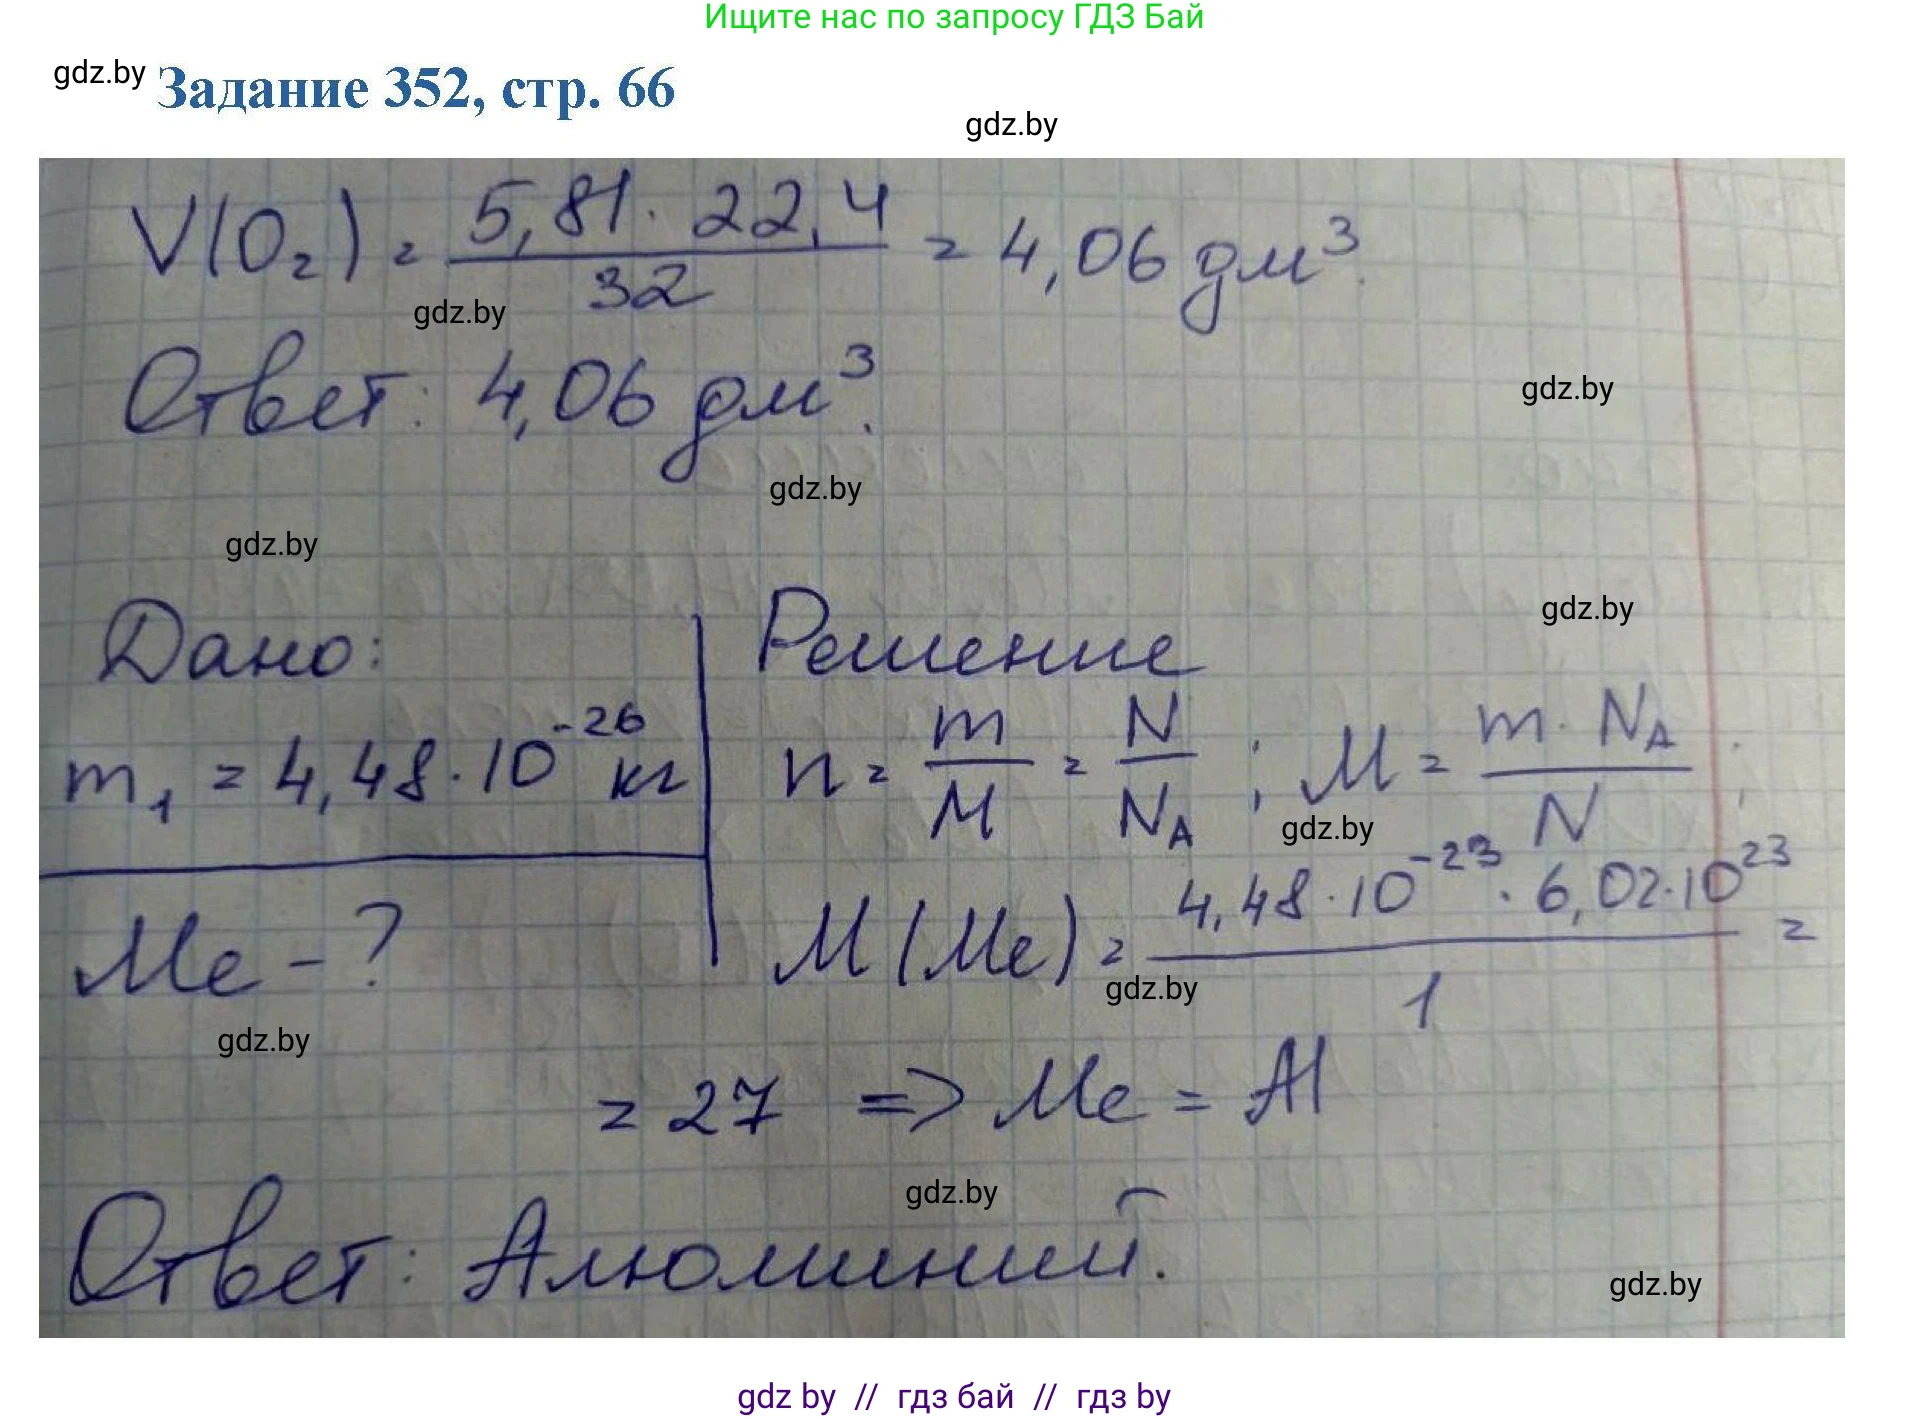 Ищите нас по запросу ГДЗ Бай
gdz.by
Задание 352, стр. 66
gdz.by
V(O₂) = 5,81 · 22,4 / 32 = 4,06 дм³.
gdz.by
Ответ: 4,06 дм³.
gdz.by
gdz.by
gdz.by
gdz.by
Дано:
Решение
m₁ = 4,48 · 10⁻²⁶ кг
n = m / M = N / N_A ; M = m · N_A / N ;
gdz.by
Me - ?
M (Me) = 4,48 · 10⁻²³ · 6,02 · 10²³ / 1 =
gdz.by
gdz.by
= 27 => Me = Al
gdz.by
Ответ: Алюминий.
gdz.by
gdz by // гдз бай // гдз by